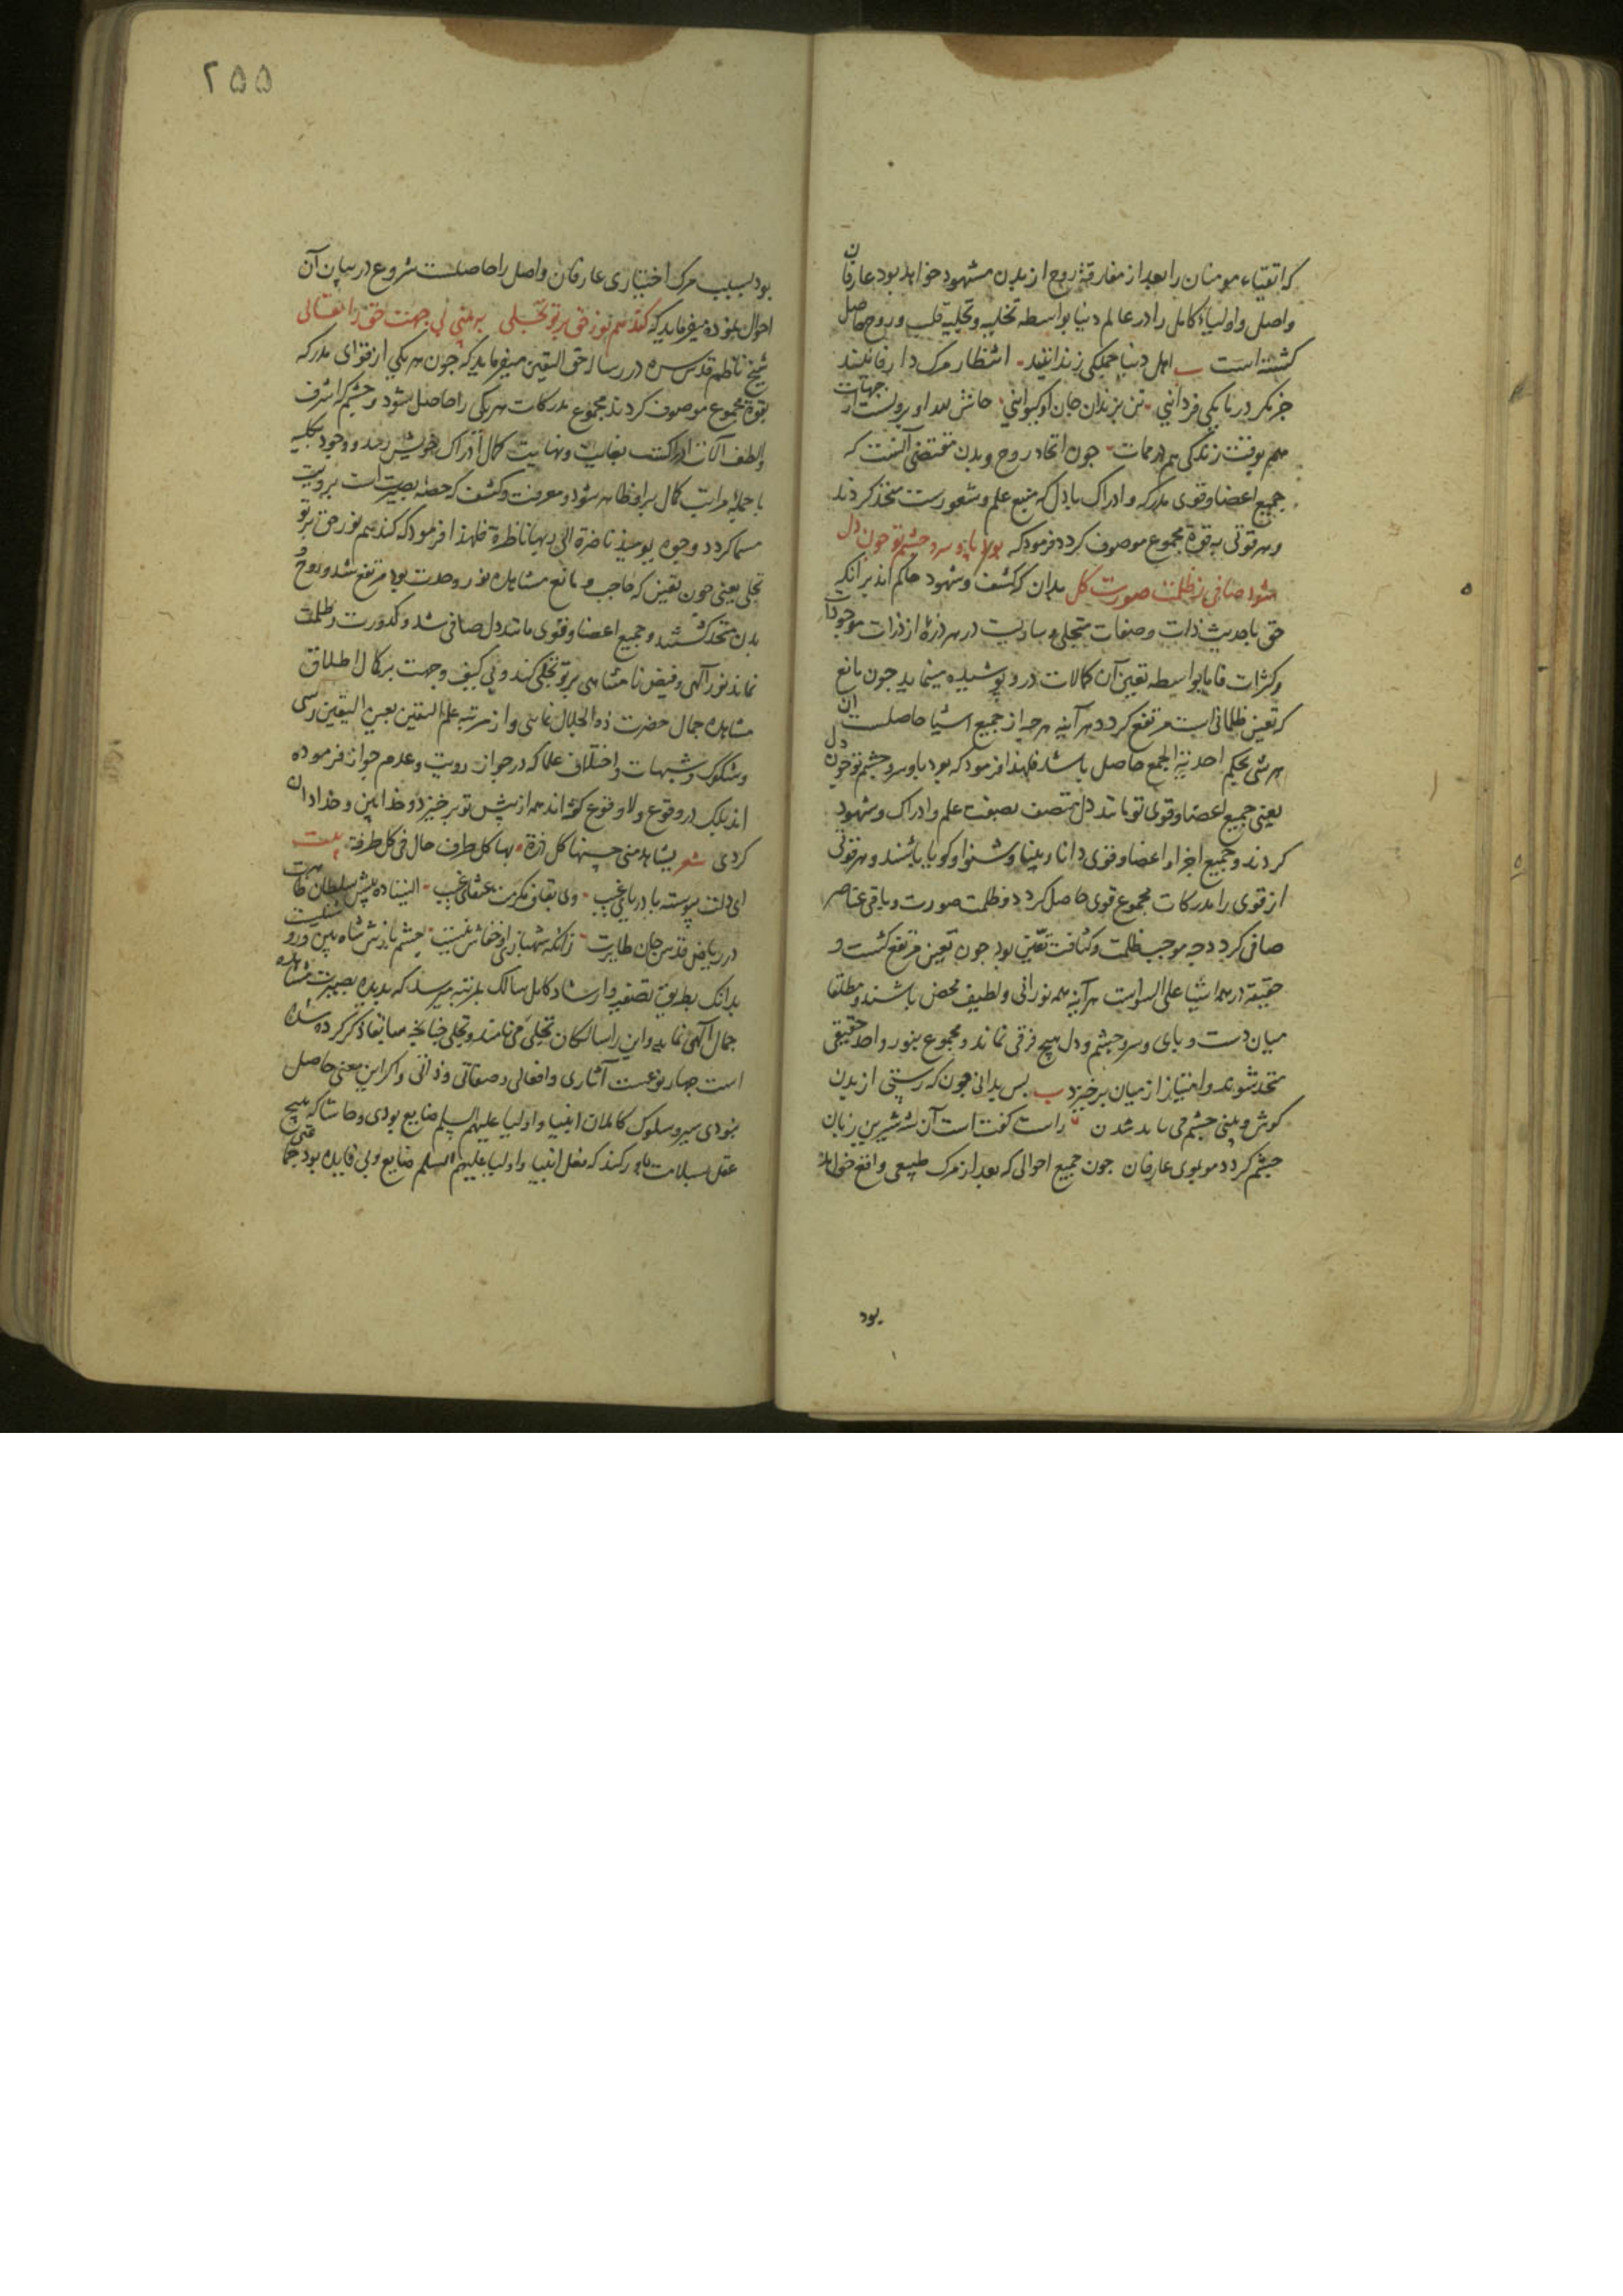 که اتقیاء مومنان را بعد از مفارقة روح از بدن مشهود خواهد بود عارفان
واصل و اولیاء کامل را در عالم دنیا بواسطه تخلیه و تجلیه قلب و روح حاصل
کشته است ب اهل دنیا جملکی زندانیند انتظار مرک دار فانیند
جز مکر در یا یکی فردانیی تن بزندان جان او کیوانیی
هم بوقت زندکی هم در ممات جون اتحاد روح و بدن مقتضی آنست که
جمیع اعضا و قوی مدرکه و ادراک با دل که منبع علم و شعورست متحد کردند
و هر قوتی به قوة مجموع موصوف کردد فرمود که بود پا و سر و چشم تو جون دل
شود صافی ز ظلمت صورت کل بدان که کشف و شهود حاکم اند برانکه
حق باحدیث ذات و صفات متجلی و ساریست در هر ذرهٔ از ذرات موجودات
و کثرات فاما بواسطه تعین آن کمالات درو پوشیده مینماید جون مانع
که تعین ظلمانی است مرتفع کردد هر آینه هر چه از جمیع اشیا حاصلست از آن
هر شی بحکم احدیة الجمع حاصل باشد فلهذا فرمود که بود پا و سر و چشم تو جون دل
یعنی جمیع اعضا و قوی تو مانند دل متصف بصفت علم و ادراک و شهود
کردند و جمیع اجزا و اعضا و قوی دانا و بینا و شنوا و کویا باشند و هر قوتی
از قوی را مدرکات مجموع قوی حاصل کردد و ظلمت صورت و باقی عناصر
صافی کردد چه موجب ظلمت و کثافت تعین بود جون تعین مرتفع کشت و
حقیقة در همه اشیا علی السواست هر آینه همه نورانی و لطیف محض باشند و مطلقا
میان دست و پای و سر و چشم و دل هیچ فرقی نماند و مجموع بنور واحد حقیقی
متحد شوند و امتیاز از میان برخیزد ب پس بدانی جون که رستی از بدن
کوش و بینی چشم می باید شدن راست کفت است آن شه شیرین زبان
چشم کردد مو بموی عارفان جون جمیع احوالی که بعد از مرک طبیعی واقع خواهد
بود
۲۵۵
بود بسبب مرک اختیاری عارفان واصل را حاصلست شروع در بیان آن
احوال نموده میفرماید که کند هم نور حق بر تو تجلی به بینی بی جهت حق را تعالی
شیخ ناظم قدس سره در رساله حق الیقین میفرماید که جون هر یکی از قوای مدرکه
بقوة مجموع موصوف کردند مجموع مدرکات هر یکی را حاصل شود و چشم که اشرف
و الطف آلات ادراکست بغایت و نهایت کمال ادراک خویش رسد و وجود بکلیه
با جملهٔ مراتب کمال برو ظاهر شود و معرفت و کشف که حصهٔ بصیرت است برویت
مسما کردد وجوه یومیذ ناضرة الی ربها ناظرة فلهذا فرمود که کند هم نور حق بر تو
تجلی یعنی جون تعین که حاجب و مانع مشاهده نور وحدت بود مرتفع شد و روح
بدن متحد کشتند و جمیع اعضا و قوی مانند دل صافی شد و کدورت و ظلمت
نماند نور آلهی و فیض نامتناهی بر تو تجلی کند و بی کیف و جهت بر کمال اطلاق
مشاهده جمال حضرت ذو الجلال نمایی و از مرتبه علم الیقین بعین الیقین رسی
و شکوک و شبهات و اختلاف علما که در جواز رویت و عدم جواز فرموده
اند بلک در وقوع و لا وقوع کفته اند همه از پیش تو برخیزد و خدا بین و خدا دان
کردی شعر یشاهد منی حسنها کل ذرة بها کل طرف جال فی کل طرفة بیت
ای دلت پیوسته با دریای غیب وی بقاف مکرمت عنقای غیب ایستاده پیش سلطان ظاهرت
در ریاض قدس جان طایرت زانکه شهبازی و خفاشی نیست چشم بازش شاه بین و رو
بدانک بطریق تصفیه و ارشاد کامل سالک بمرتبهٔ میرسد که بدیده بصیرت مشاهده
جمال آلهی نماید و این را سالکان تجلی می نامند و تجلی چنانچه سابقا ذکر کرده شده
است چهار نوعست آثاری و افعالی و صفاتی و ذاتی و اکر این معنی حاصل
نبودی سیر و سلوک کاملان انبیا و اولیا علیهم السلم ضایع بودی و حاشا که هیچ
عقل سلامت باور کند که فعل انبیا و اولیا علیهم السلم ضایع و بی فایده بود